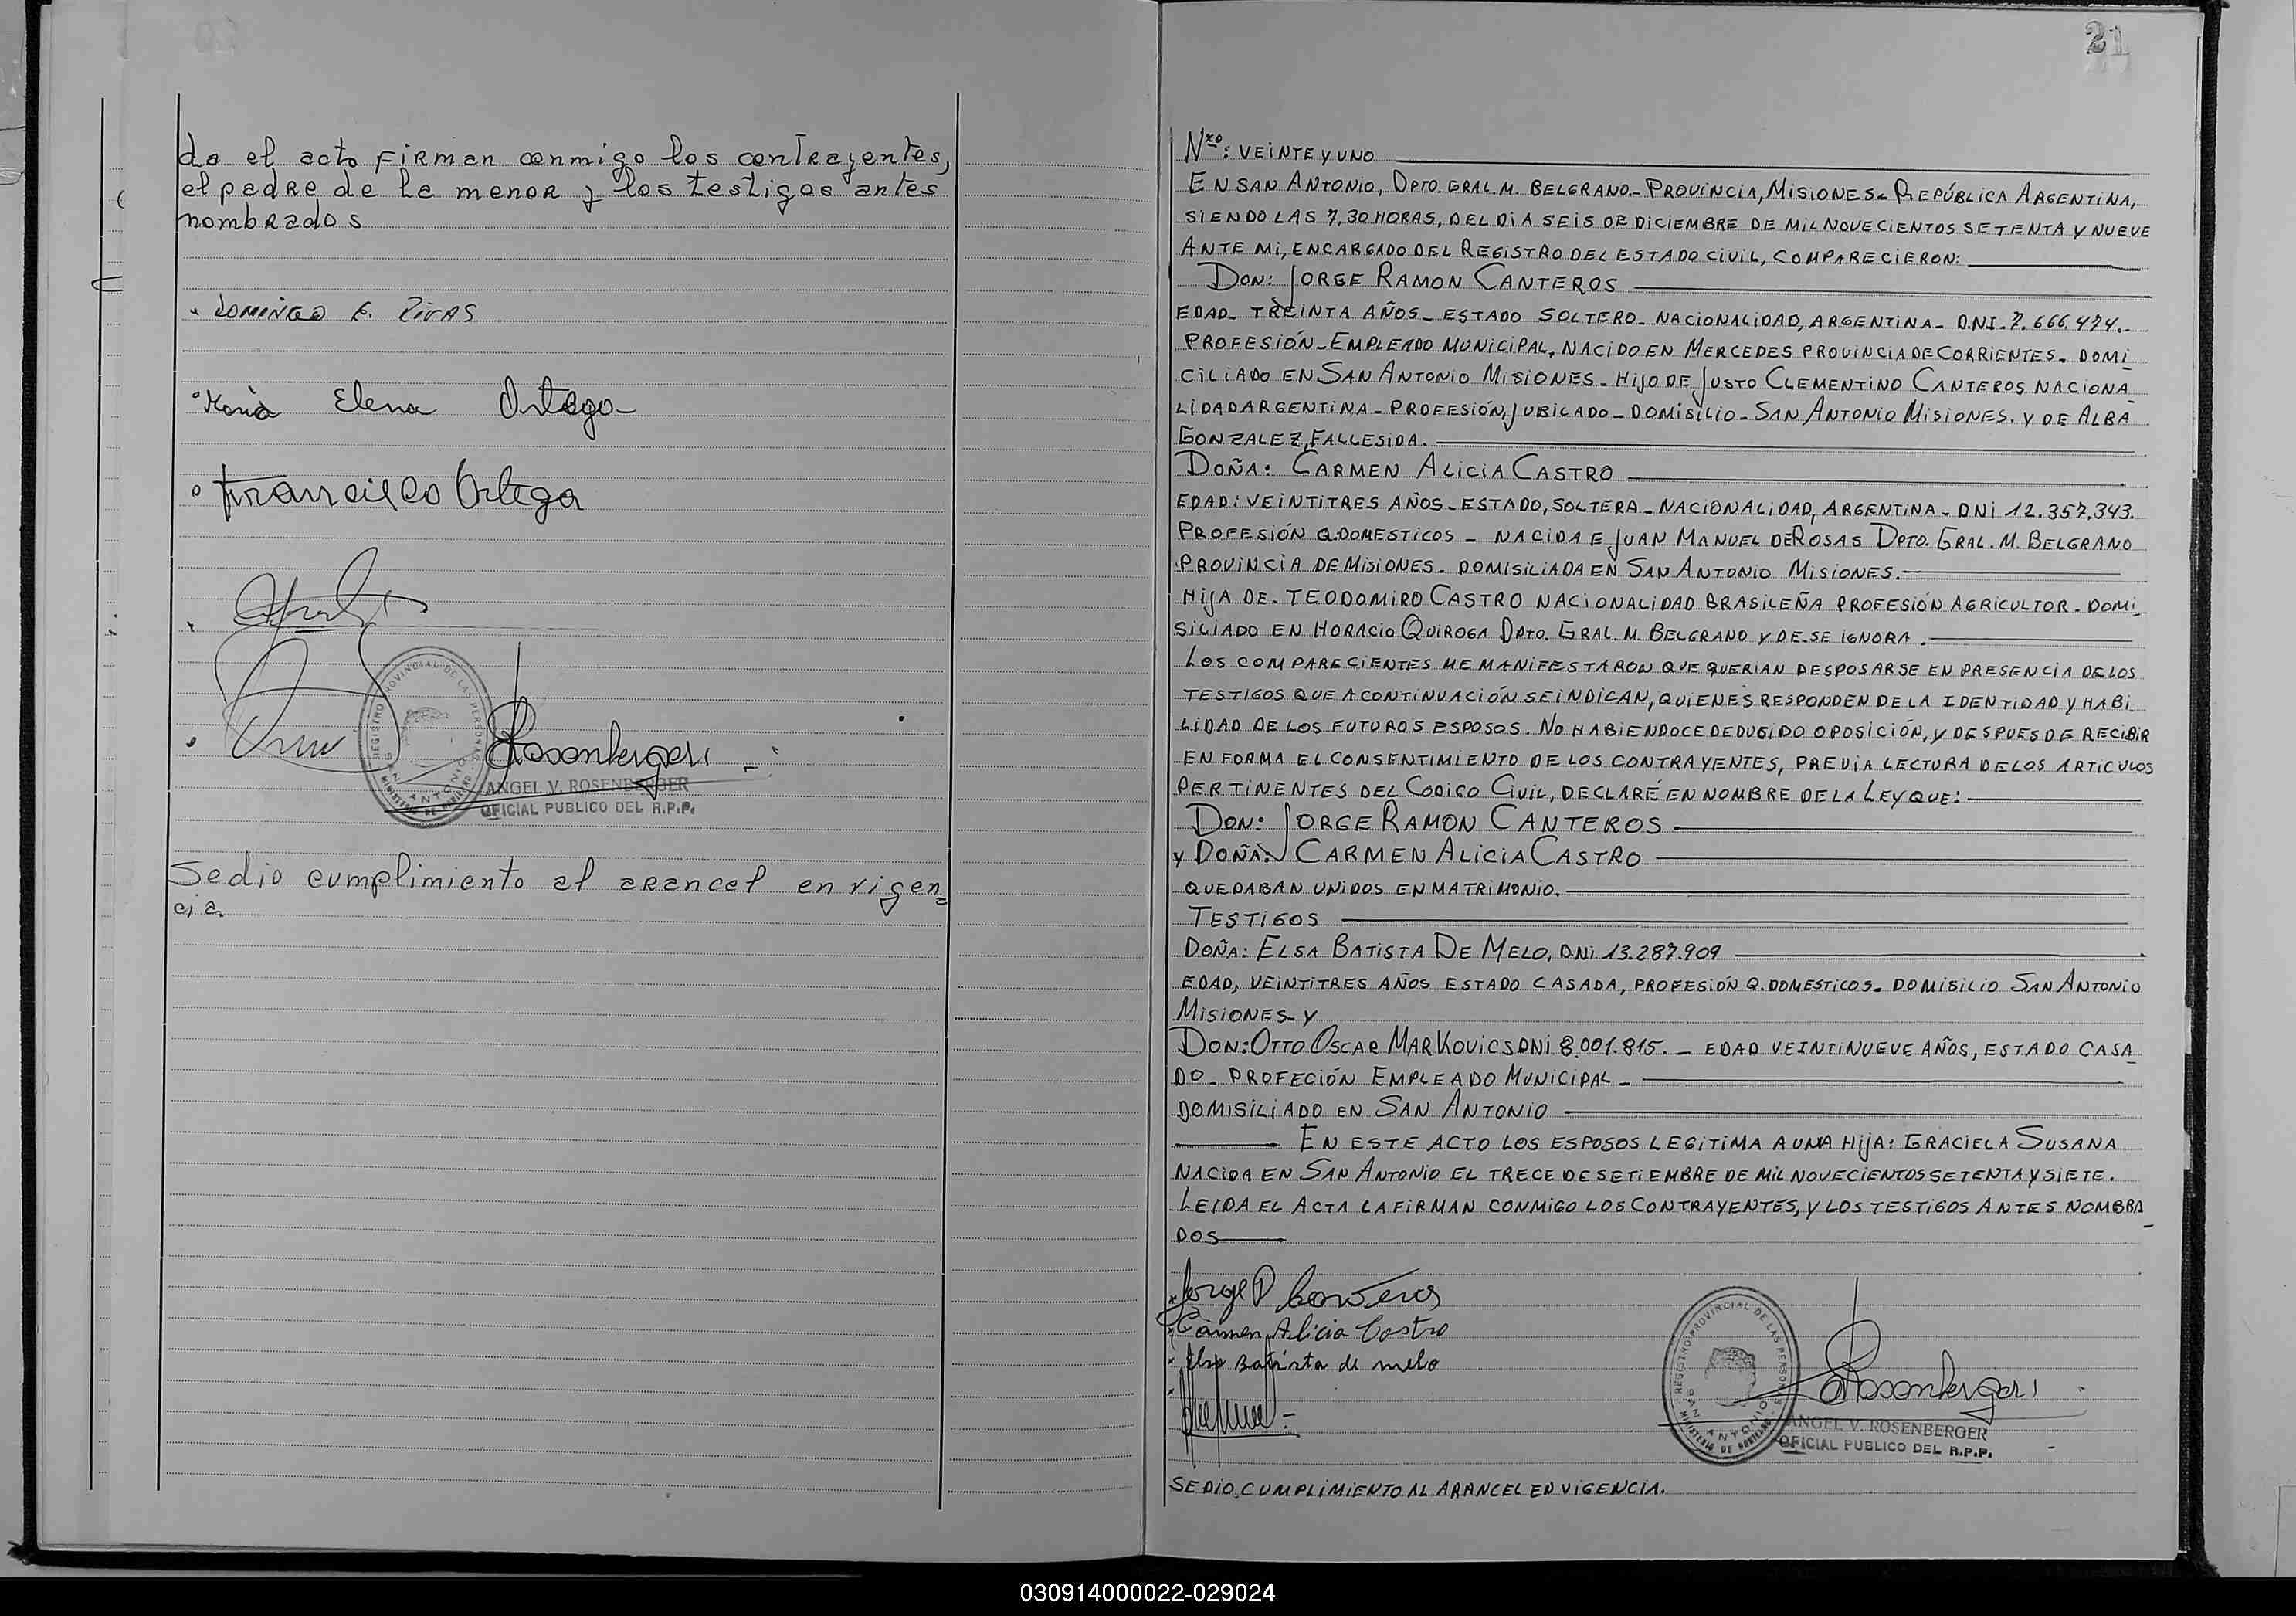 do el acto firman conmigo los contrayentes,
el padre de la menor y los testigos antes
nombrados
DOMINGO R. RIVAS
María Elena Ortega
Francisco Ortega
REGISTRO PROVINCIAL DE LAS PERSONAS
SAN ANTONIO
MINISTERIO DE
Rosenberger
ANGEL V. ROSENBERGER
OFICIAL PUBLICO DEL R.P.P.
Se dio cumplimiento al arancel en vigen
cia.
21
Nro: VEINTE Y UNO
EN SAN ANTONIO, DPTO. GRAL. M. BELGRANO - PROVINCIA, MISIONES - REPÚBLICA ARGENTINA,
SIENDO LAS 7,30 HORAS, DEL DIA SEIS DE DICIEMBRE DE MIL NOVECIENTOS SETENTA Y NUEVE
ANTE MI, ENCARGADO DEL REGISTRO DEL ESTADO CIVIL, COMPARECIERON:
DON: JORGE RAMON CANTEROS
EDAD - TREINTA AÑOS - ESTADO SOLTERO - NACIONALIDAD, ARGENTINA - D.N.I. 7.666.474.-
PROFESIÓN - EMPLEADO MUNICIPAL, NACIDO EN MERCEDES PROVINCIA DE CORRIENTES - DOMI
CILIADO EN SAN ANTONIO MISIONES - HIJO DE JUSTO CLEMENTINO CANTEROS NACIONA
LIDAD ARGENTINA - PROFESIÓN, JUBILADO - DOMISILIO - SAN ANTONIO MISIONES. Y DE ALBA
GONZALEZ, FALLESIDA.
DOÑA: CARMEN ALICIA CASTRO
EDAD: VEINTITRES AÑOS - ESTADO, SOLTERA - NACIONALIDAD, ARGENTINA - DNI 12.357.343.
PROFESIÓN Q.DOMESTICOS - NACIDA E JUAN MANUEL DE ROSAS DPTO. GRAL. M. BELGRANO
PROVINCIA DE MISIONES - DOMISILIADA EN SAN ANTONIO MISIONES.
HIJA DE - TEODOMIRO CASTRO NACIONALIDAD BRASILEÑA PROFESIÓN AGRICULTOR - DOMI
SILIADO EN HORACIO QUIROGA DPTO. GRAL. M. BELGRANO Y DE - SE IGNORA.
LOS COMPARECIENTES ME MANIFESTARON QUE QUERIAN DESPOSARSE EN PRESENCIA DE LOS
TESTIGOS QUE A CONTINUACIÓN SE INDICAN, QUIENES RESPONDEN DE LA IDENTIDAD Y HABI
LIDAD DE LOS FUTUROS ESPOSOS. NO HABIENDOCE DEDUSIDO OPOSICIÓN, Y DESPUES DE RECIBIR
EN FORMA EL CONSENTIMIENTO DE LOS CONTRAYENTES, PREVIA LECTURA DE LOS ARTICULOS
PERTINENTES DEL CODIGO CIVIL, DECLARÉ EN NOMBRE DE LA LEY QUE:
DON: JORGE RAMON CANTEROS
Y DOÑA: CARMEN ALICIA CASTRO
QUEDABAN UNIDOS EN MATRIMONIO.
TESTIGOS
DOÑA: ELSA BATISTA DE MELO, DNI 13.287.909
EDAD, VEINTITRES AÑOS ESTADO CASADA, PROFESIÓN Q. DOMESTICOS - DOMISILIO SAN ANTONIO
MISIONES Y
DON: OTTO OSCAR MARKOVICS DNI 8.001.815. - EDAD VEINTINUEVE AÑOS, ESTADO CASA
DO - PROFECIÓN EMPLEADO MUNICIPAL -
DOMISILIADO EN SAN ANTONIO
EN ESTE ACTO LOS ESPOSOS LEGITIMA A UNA HIJA: GRACIELA SUSANA
NACIDA EN SAN ANTONIO EL TRECE DE SETIEMBRE DE MIL NOVECIENTOS SETENTA Y SIETE.
LEIDA EL ACTA LA FIRMAN CONMIGO LOS CONTRAYENTES, Y LOS TESTIGOS ANTES NOMBRA
DOS
Jorge R Canteros
Carmen Alicia Castro
Elsa Batista de melo
REGISTRO PROVINCIAL DE LAS PERSONAS
SAN ANTONIO
MINISTERIO DE
Rosenberger
ANGEL V. ROSENBERGER
OFICIAL PUBLICO DEL R.P.P.
SE DIO CUMPLIMIENTO AL ARANCEL EN VIGENCIA.
030914000022-029024